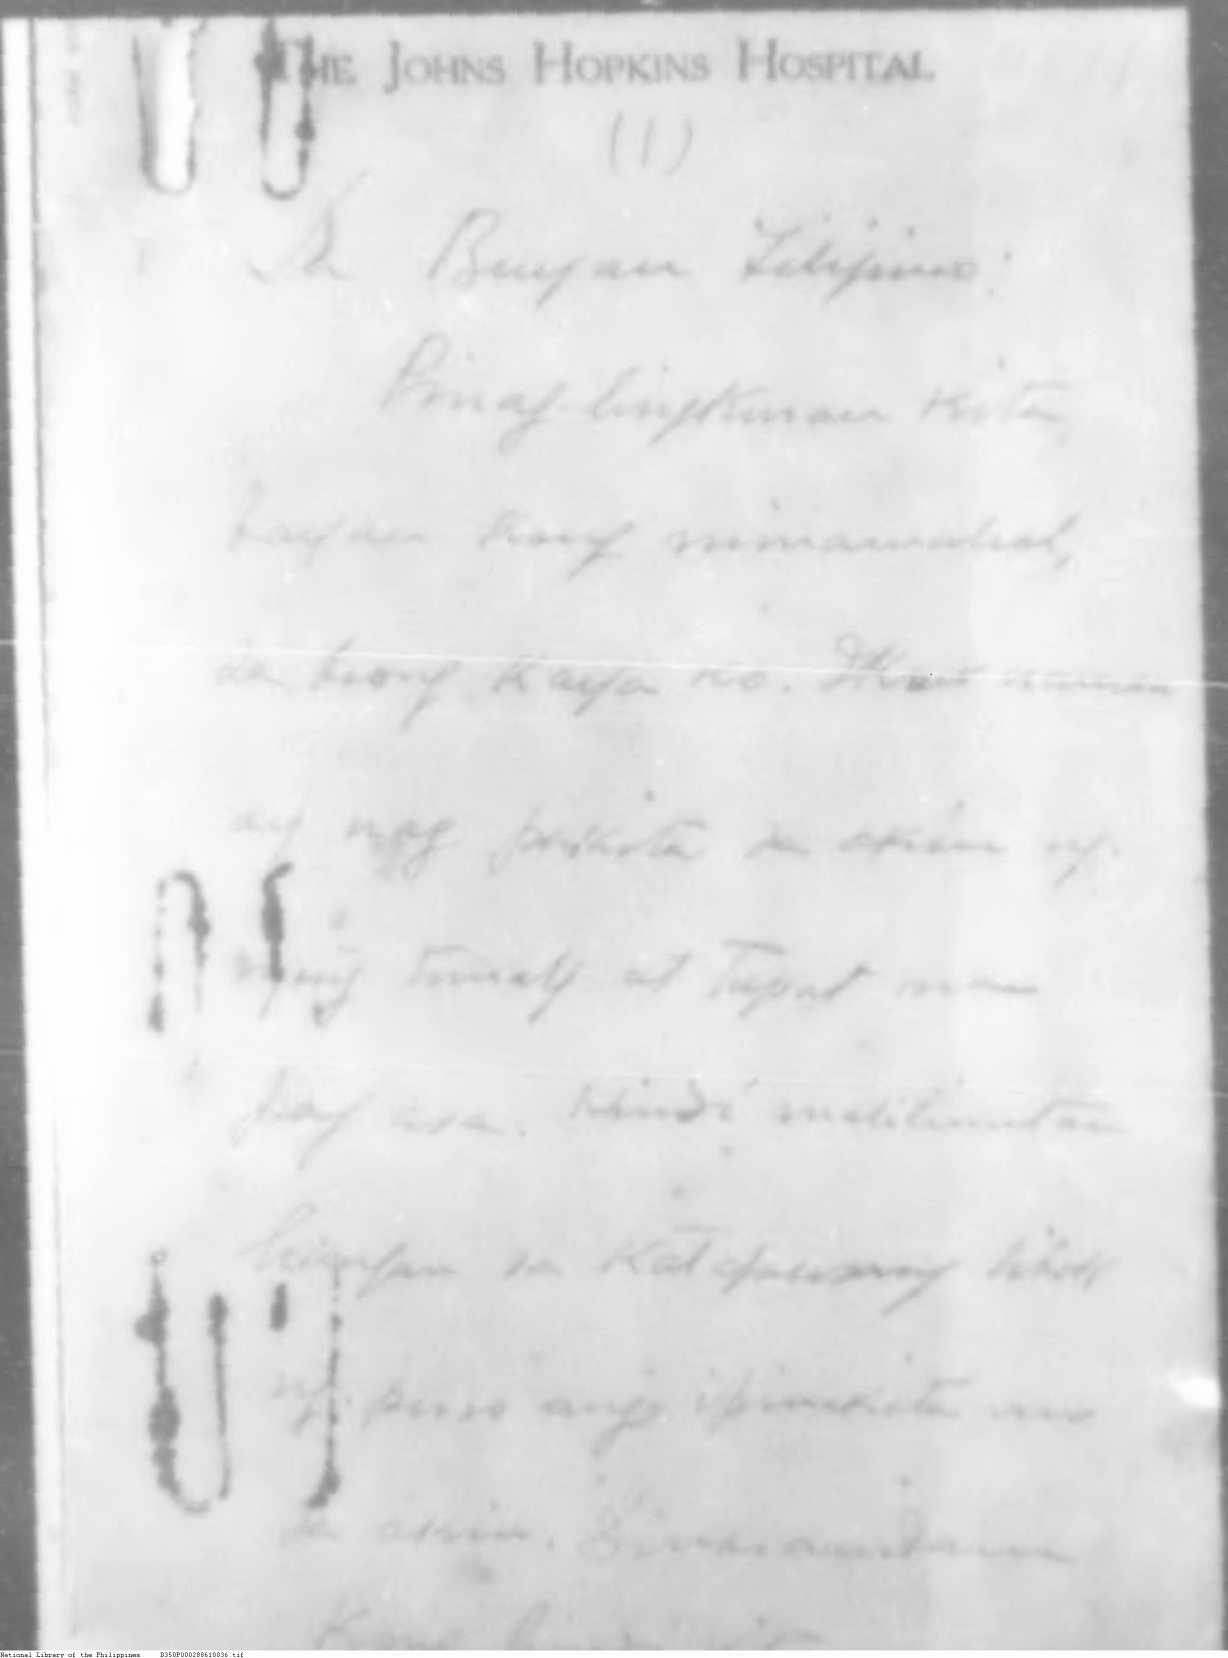 THE JOHNS HOPKINS HOSPITAL
(1)
Sa Bayan Filipino:
Pinaglingkuran kita
bayan kong minamahal,
sa boong kaya ko. Ikaw naman
ay nag pakita sa akin ng
tunay at tapat na
pag asa. Hindi malilimutan
sa katapusang tibok
ng puso ang ipinakita mo
sa akin.
National Library of the Philippines D350P000288610836.tif